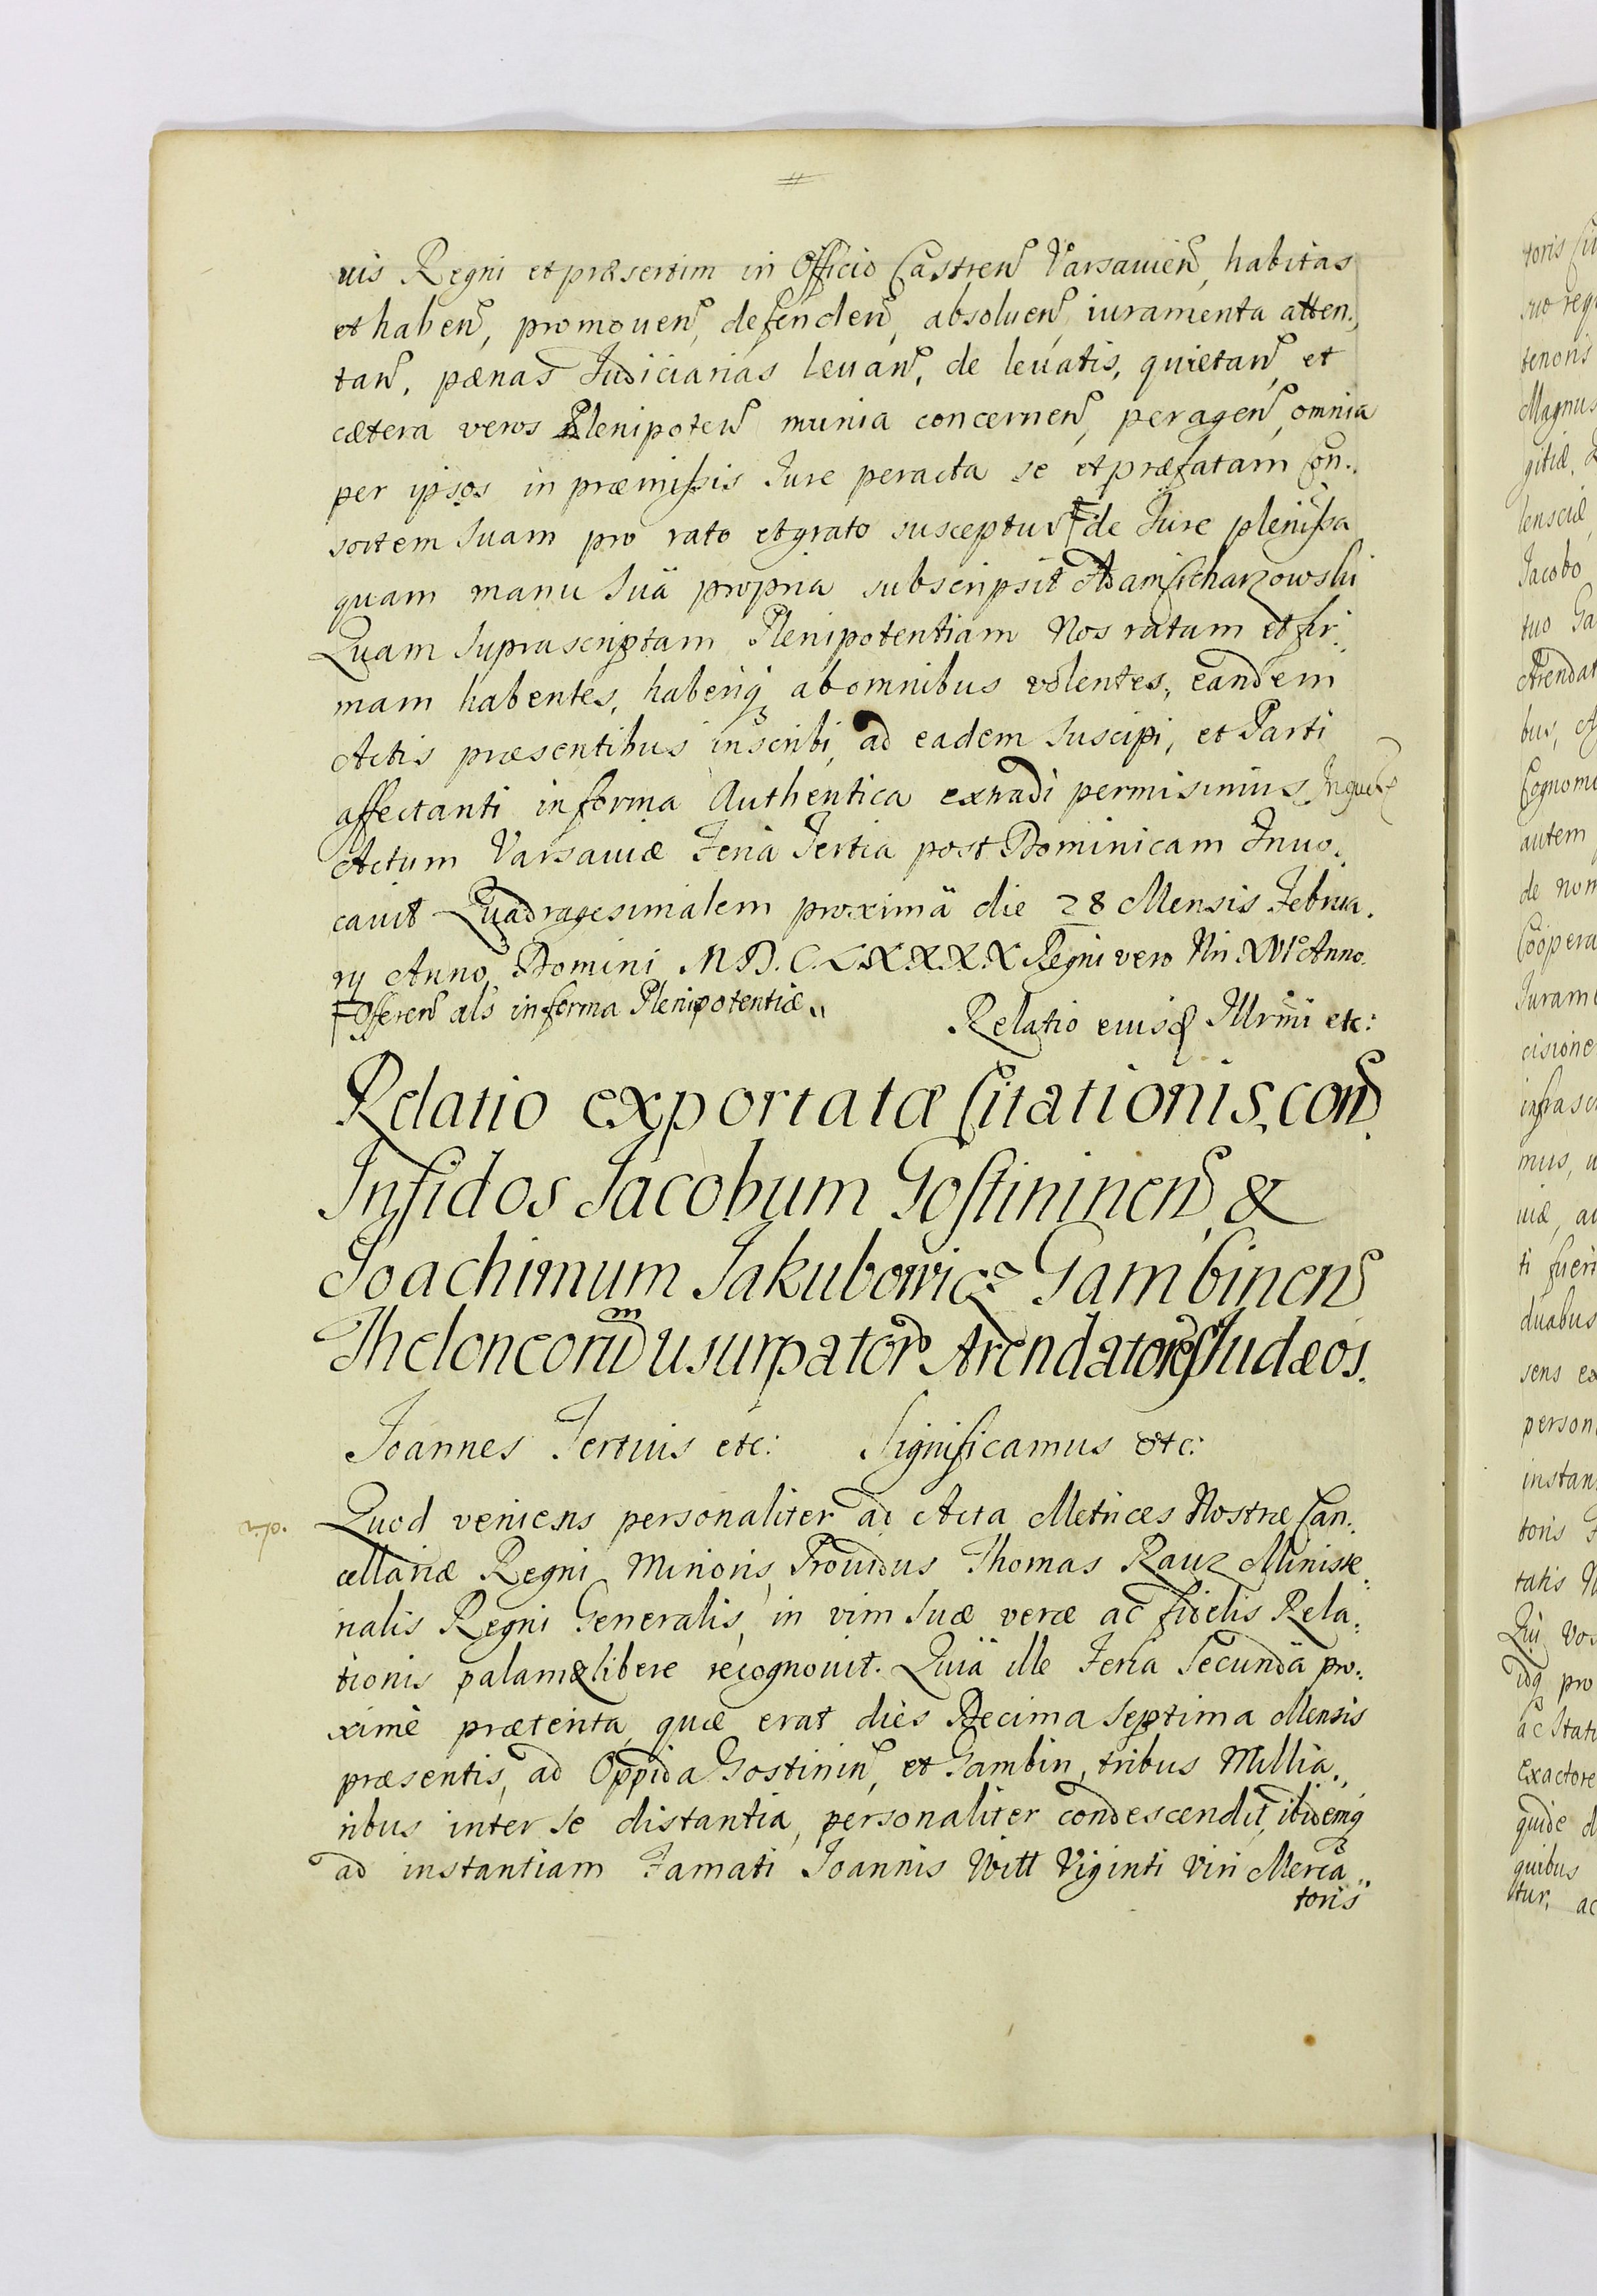 uis Regni et præsertim in Officio Castren Varsauien, habitas
et haben, promouen, defenden, absoluen iuramenta atten:,
tan, pænas Judiciarias leuan, de leuatis, quietan, et
cætera veros Plenipoten munia concernen, peragen, omnia
per ipsos in præmissis Jure peracta se et præfatam Con:,
sortem suam pro rato et grato susceptur de Jure plenissa
quam manu suä propria subscripsit Adam Cicharzowski
Quam suprascriptam Plenipotentiam Nos ratam et fir:,
mam habentes, haberiq, ab omnibus volentes, eandem
Actis præsentibus inscribi, ad eadem suscipi, et Parti
affectanti in forma Authentica extradi permisimus
Actum Varsauiæ Feria Tertia post Dominicam Inuo:,
cauit Quadragesimalem proximä die 28 Mensis Februa.
rij Anno Domini M.D.C.L.X.X.X.X Regni vero Nri XVIo Anno.
Oferen als in forma Plenipotentiæ.,
Relatio eiusd Illrmi etc:
Relatio exportatæ Citationis, con
Infidos Jacobum Gostininen, &
Joachimum Jakubowicz Gambinen
Theloneorum usurpator Arendatores Judæos.
Joannes Tertius etc: Significamus etc:
Quod veniens personaliter ad Acta Metrices Nostræ Can:,
cellariæ Regni Minoris, Prouidus Thomas Rauz Ministe:,
rialis Regni Generalis, in vim suæ veræ ac fidelis Rela:,
tionis palam & libere recognouit. Quiä ille Feria Secundä pro:,
ximè præterita, quæ erat dies Decima Septima Mensis
præsentis, ad Oppida Gostinin, et Gambin, tribus Millia:,
ribus inter se distantia, personaliter condescendit, ibidemq
ad instantiam Famati Joannis Witt Viginti Viri Merca:,
toris